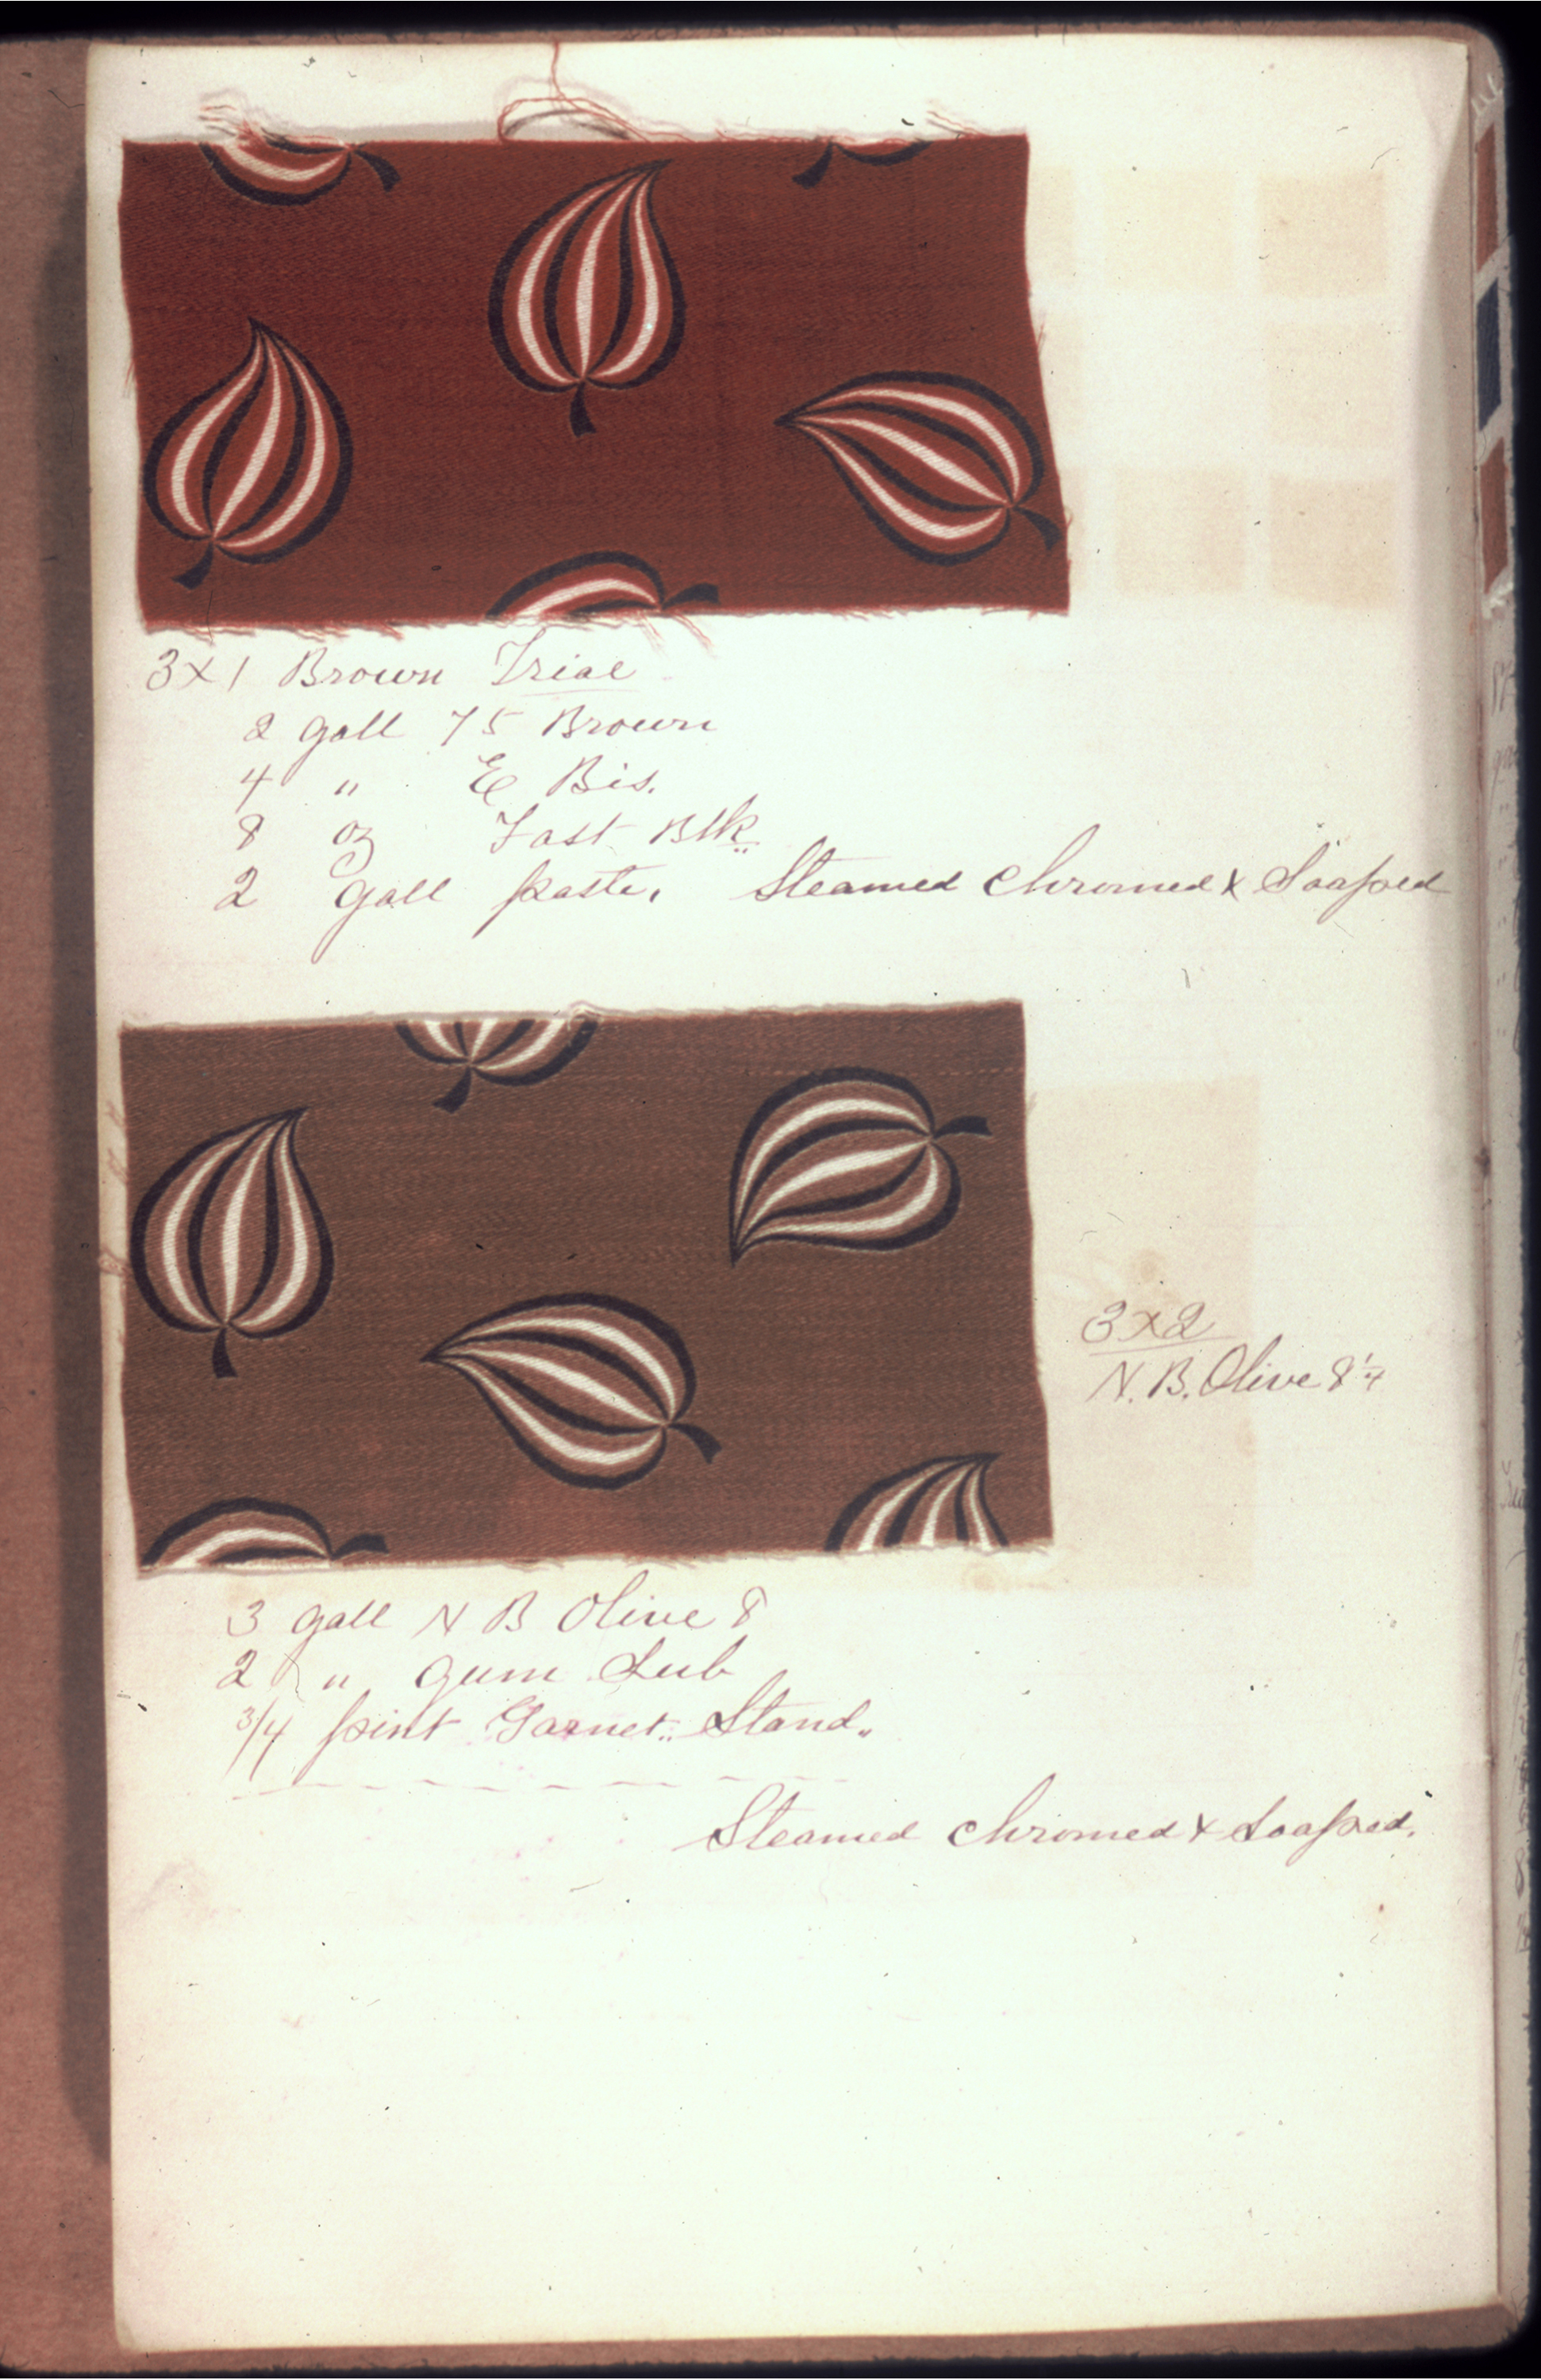 3 x 1 Brown Trial
2 gall 75 Brown
4 " E Bis.
8 oz Fast Blk
2 gall paste. Steamed Chromed x Soaped
3 x 2
N. B. Olive 8 1/4
3 gall N B Olive 8
2 " Gum Sub
3/4 pint Garnet Stand.
Steamed Chromed x Soaped.